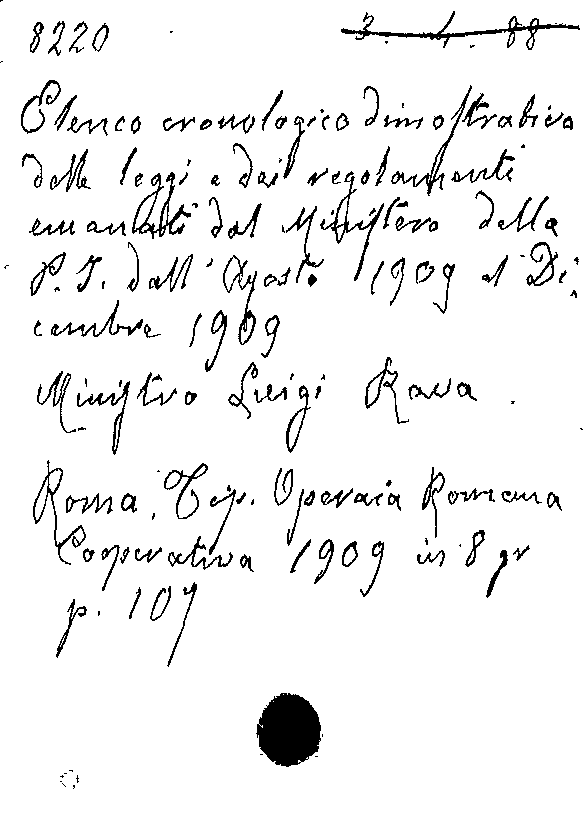 8220 3. 4. 88
Elenco cronologico dimostrativo
delle leggi e dei regolamenti
emanati dal Ministero della
P. I. dall'Agosto 1909 al Di
cembre 1909
Ministro Luigi Rava.
Roma, Tip. Operaia Romana
Cooperativa 1909 in 8 gr
p. 107